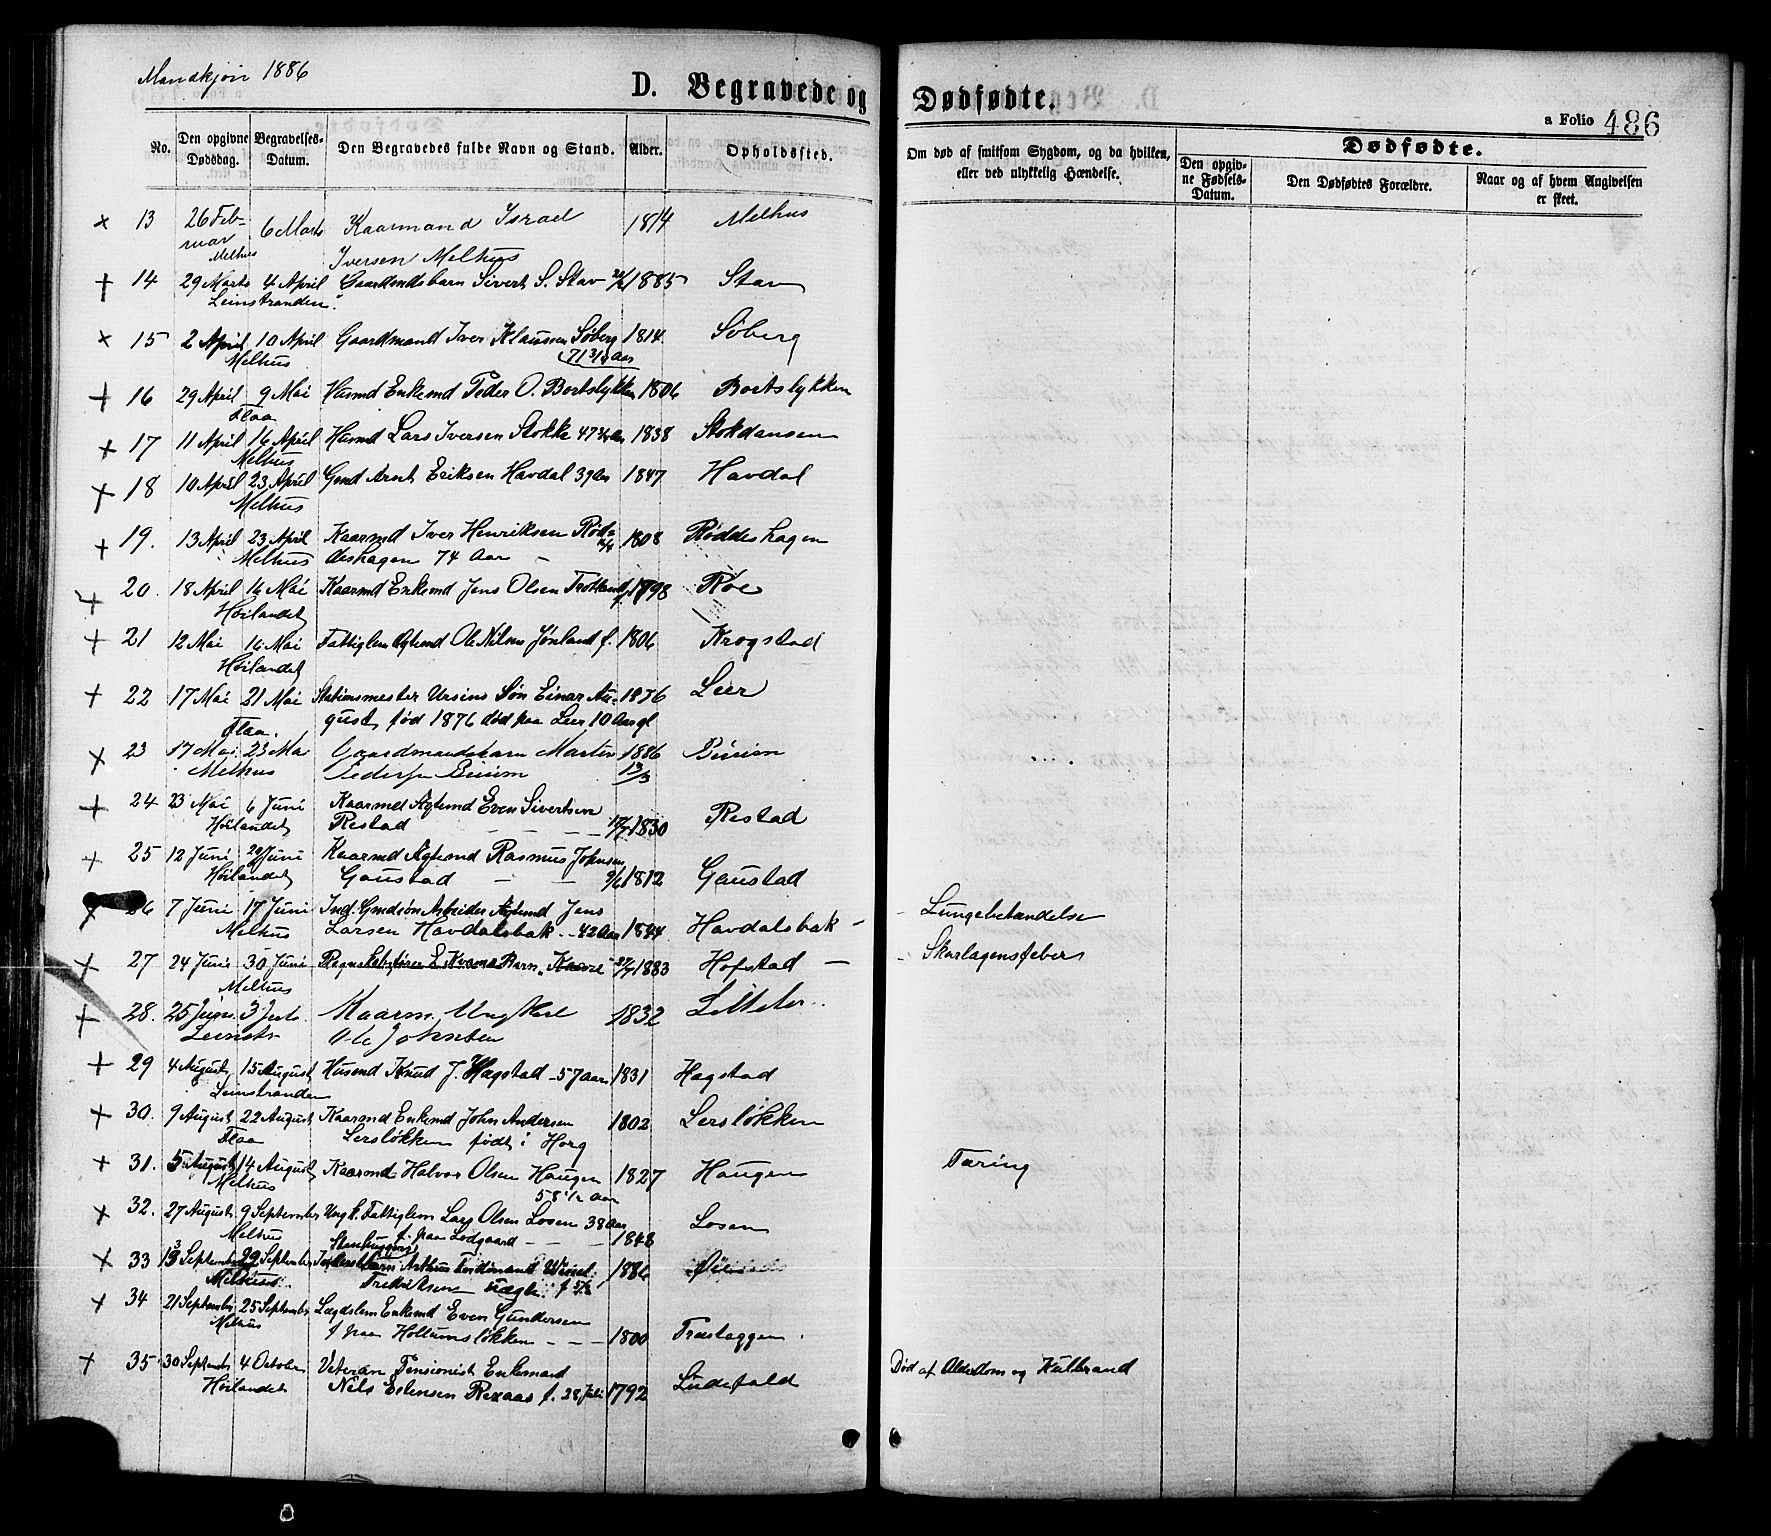 Mandkjøn 1886
D. Begravede og Dødfødte.
a Folio 486
No.
Den opgivne Dødsdag.
Begravelses-Datum.
Den Begravedes fulde Navn og Stand.
Alder.
Opholdssted.
Om død af smitsom Sygdom, og da hvilken, eller ved ulykkelig Hændelse.
Dødfødte.
Den opgivne Fødsels-Datum.
Den Dødfødtes Forældre.
Naar og af hvem Angivelsen er skeet.
x 13 26 Feb- 6 Marts Kaarmand Israel 1814 Melhus
ruar Melhus Iversen Melhus
+ 14 29 Marts 4 April Gaardmdsbarn Sivert S. Stav 1885 Stav
Leinstranden
x 15 2 April 10 April Gaardmand Iver Klaussen Søberg 1814 Søberg
Melhus 71 3/4 Aar
+ 16 29 April 9 Mai Husmd Enkemd Peder O. Bortslykken 1806 Bortslykken
Flaa
+ 17 11 April 16 April Husmd Lars Iversen Stokke 47 3/4 Aar 1838 Stokdansen
Melhus
+ 18 10 April 23 April Gmd Arnt Eriksen Havdal 39 Aar 1847 Havdal
Melhus
+ 19. 13 April 23 April Kaarmd Iver Henriksen Rød- 1808 Røddeshagen
Melhus deshagen 74 Aar
+ 20. 18 April 16 Mai Kaarmd Enkemd Jens Olsen 1798 Roe
Høilandet
+ 21 12 Mai 16 Mai Fattiglem Ole Nilsen Jønland f. 1806 Krogstad
Høilandet
+ 22 17 Mai 21 Mai Stationsmester Ursins Søn Einar Au- 1876 Leer
Flaa. gust, fød 1876 død paa Leer 10 Aar gl
x 23 17 Mai 23 Mai Gaardmandsbarn Martin 1886
Melhus 13/3
+ 24 23 Mai 6 Juni Kaarmd Even Sivertsen
Høilandet Restad 1830 Restad
+ 25 12 Juni 20 Juni Kaarmd Rasmus Johnsen
Høilandet Gaustad 1812 Gaustad
x 26 7 Juni 17 Juni Ind. Gmdsøn Arbeider Jens
Melhus Larsen Havdalsbak 42 Aar 1844 Havdalsbak - Lungebetændelse
+ 27 24 Juni 30 Juni Regnskabsfører E. Kvams Barn Kaare 1883 Hofstad - Skarlagensfeber
Melhus
+ 28. 25 Juni 3 Juli Kaarm. Ungkarl 1832
Leinstr Ole Johnsen
+ 29 4 August 15 August Husmd Knud J. Hagstad 57 aar 1831 Hagstad
Leinstranden
+ 30. 9 August 22 August Kaarmd Enkemd John Andersen 1802 Lersløkken
Flaa Lersløkken født i Horg
+ 31. 5 August 14 August Kaarmd Halvor Olsen Haugen 1827 Haugen Tæring
Melhus 58 1/2 Aar
x 32. 27 August 9 September Ungk. Fattiglem Lars Olsen Losen 38 Aar Losen
Melhus f. paa Lodgaard 1848
x 33 13 September 29 September 1886
Melhus Fredriksen
x 34 21 September 25 September Lægdslem Enkemd Even Gundersen
Melhus f. paa Hollumsløkken 1800
+ 35 30 Septembr 4 October Veteran Pensionist Enkemand
Høilandet Nils Estensen f. 28 Juli 1792 Død af Alderdom og Kulbrand